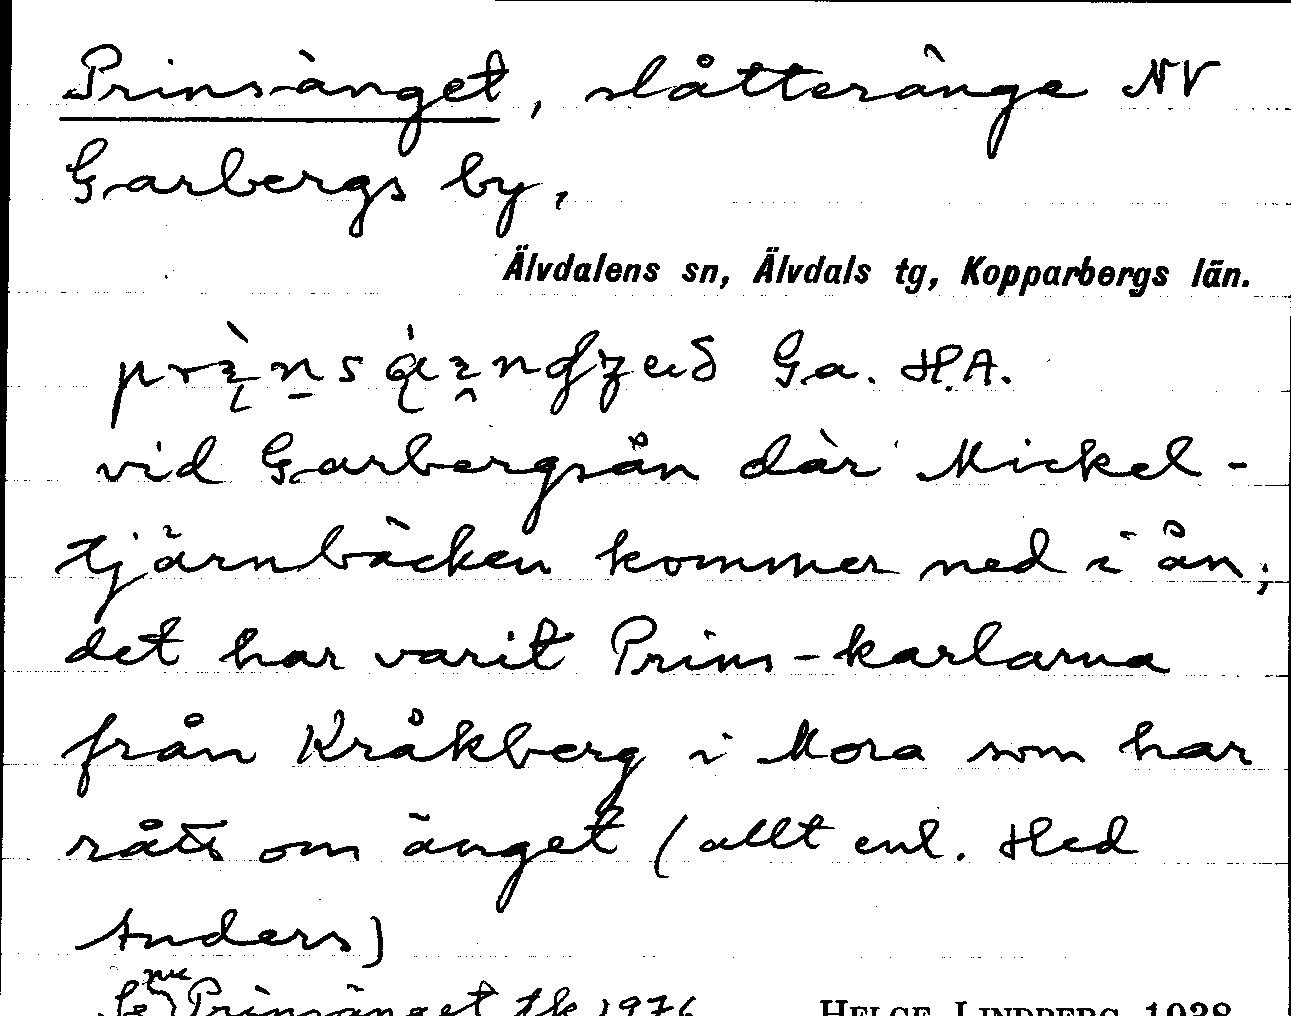 Prinsänget, slåtteränge NV
Garbergs by,
Älvdalens sn, Älvdals tg, Kopparbergs län.
Ga. H.A.
vid Garbergsån där Mickel-
tjärnbäcken kommer ned i ån;
det har varit Prins-karlarna
från Kråkberg i Mora som har
rått om änget (allt enl. Hed
Anders)
Se nu Prinsänget tk 1976
HELGE LINDBERG 1938